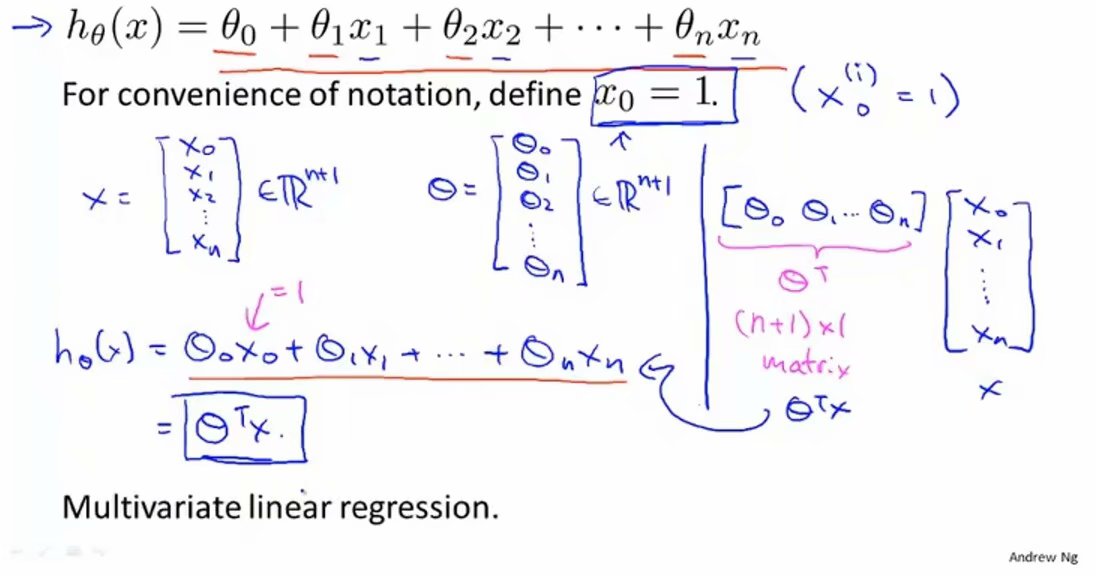 → hθ(x) = θ₀ + θ₁x₁ + θ₂x₂ + ⋯ + θₙxₙ
For convenience of notation, define x₀ = 1. (x₀⁽ⁱ⁾ = 1)
x = [x₀ x₁ x₂ ⋮ xₙ] ∈ ℝⁿ⁺¹ θ = [θ₀ θ₁ θ₂ ⋮ θₙ] ∈ ℝⁿ⁺¹
= 1
hθ(x) = θ₀x₀ + θ₁x₁ + ⋯ + θₙxₙ
= θᵀx.
[θ₀ θ₁ ⋯ θₙ] [x₀ x₁ ⋮ xₙ]
θᵀ
(n+1) × 1
matrix
x
θᵀx
Multivariate linear regression.
Andrew Ng